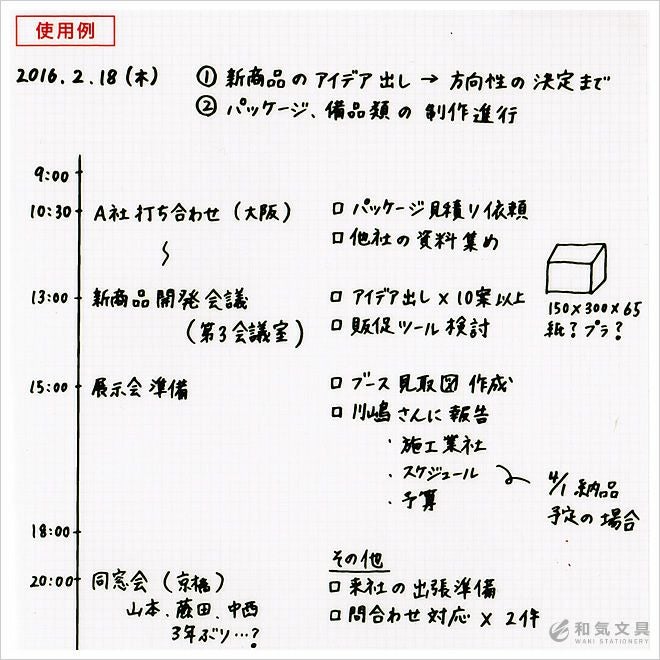 使用例
2016.2.18(木) ① 新商品のアイデア出し → 方向性の決定まで
② パッケージ、備品類の制作進行
9:00
10:30 A社打ち合わせ(大阪) □ パッケージ見積り依頼
□ 他社の資料集め
13:00 新商品開発会議 □ アイデア出し×10案以上
(第3会議室) □ 販促ツール検討
150×300×65
紙?プラ?
15:00 展示会準備 □ ブース見取図作成
□ 川嶋さんに報告
・施工業社
・スケジュール
・予算
4/1納品
予定の場合
18:00
その他
20:00 同窓会(京橋) □ 来社の出張準備
山本、藤田、中西 □ 問合わせ対応×2件
3年ぶり…?
和気文具
WAKI STATIONERY